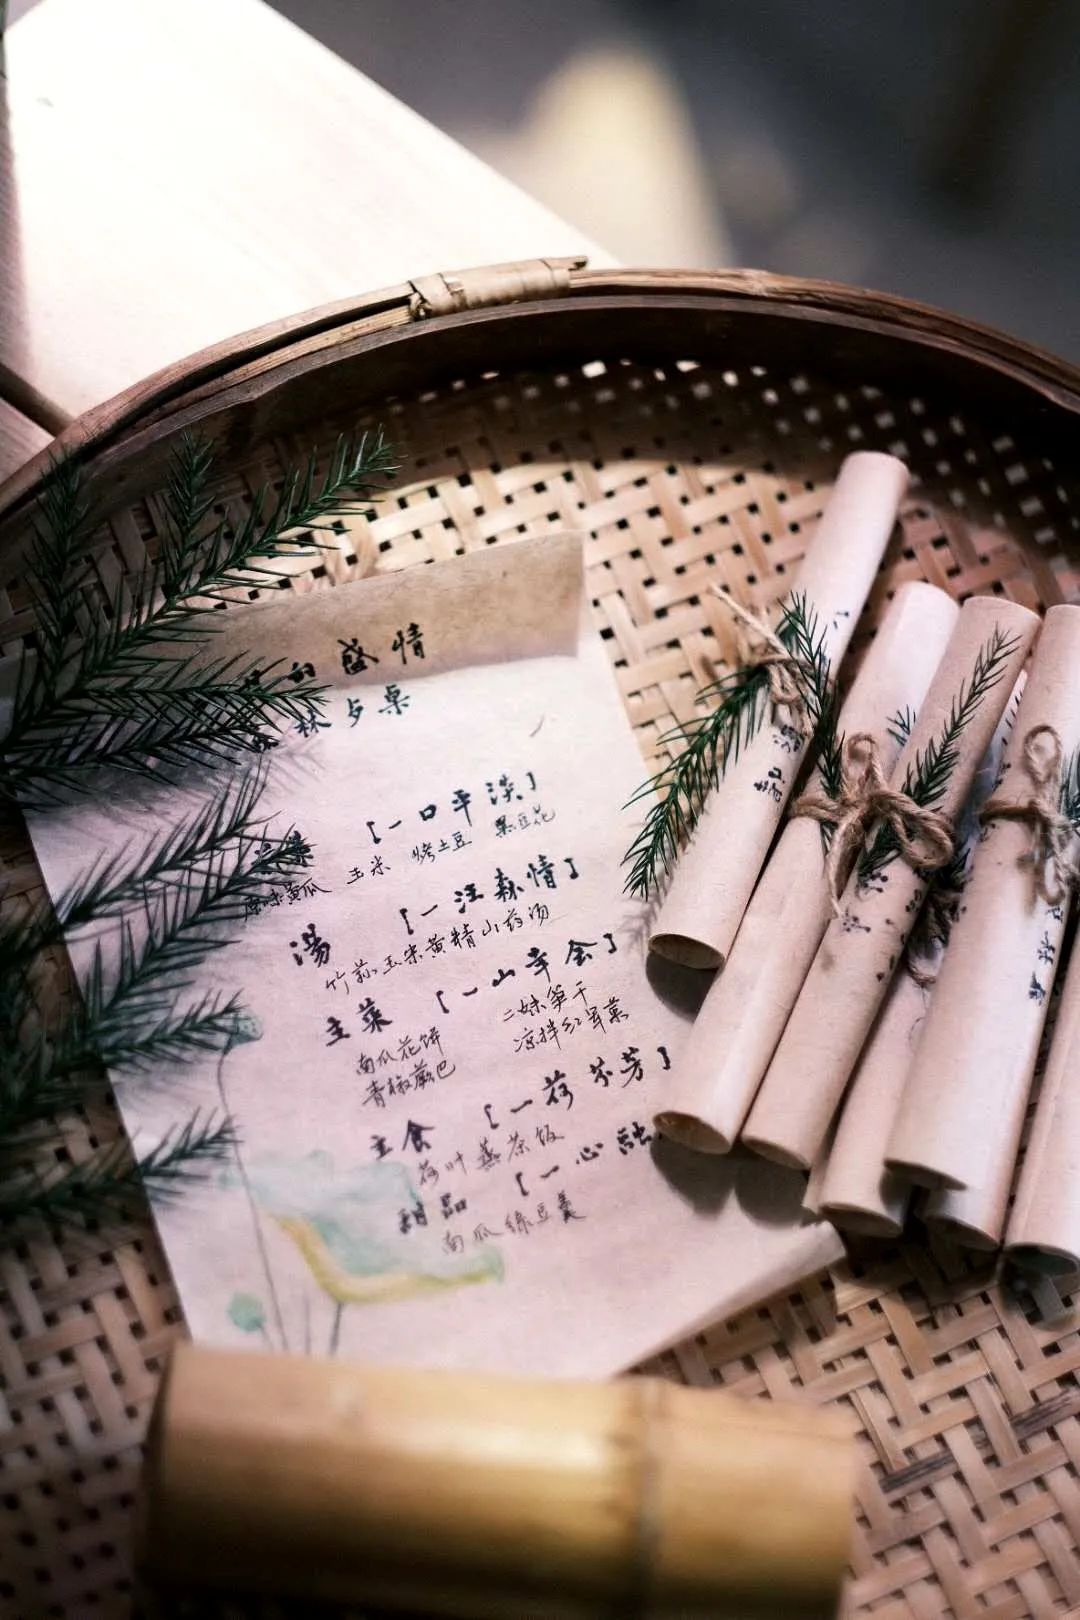 的盛情
林夕桌
[一口平淡]
原味黄瓜 玉米 烤土豆 黑豆花
湯 [一汪森情]
竹荪玉米黄精山药汤
主菜 [一山幸会]
南瓜花饼 二妹笋干
青椒蕨巴 凉拌红耳菜
主食 [一荷芬芳]
荷叶蒸茶饭
甜品 [一心融
南瓜绿豆羹